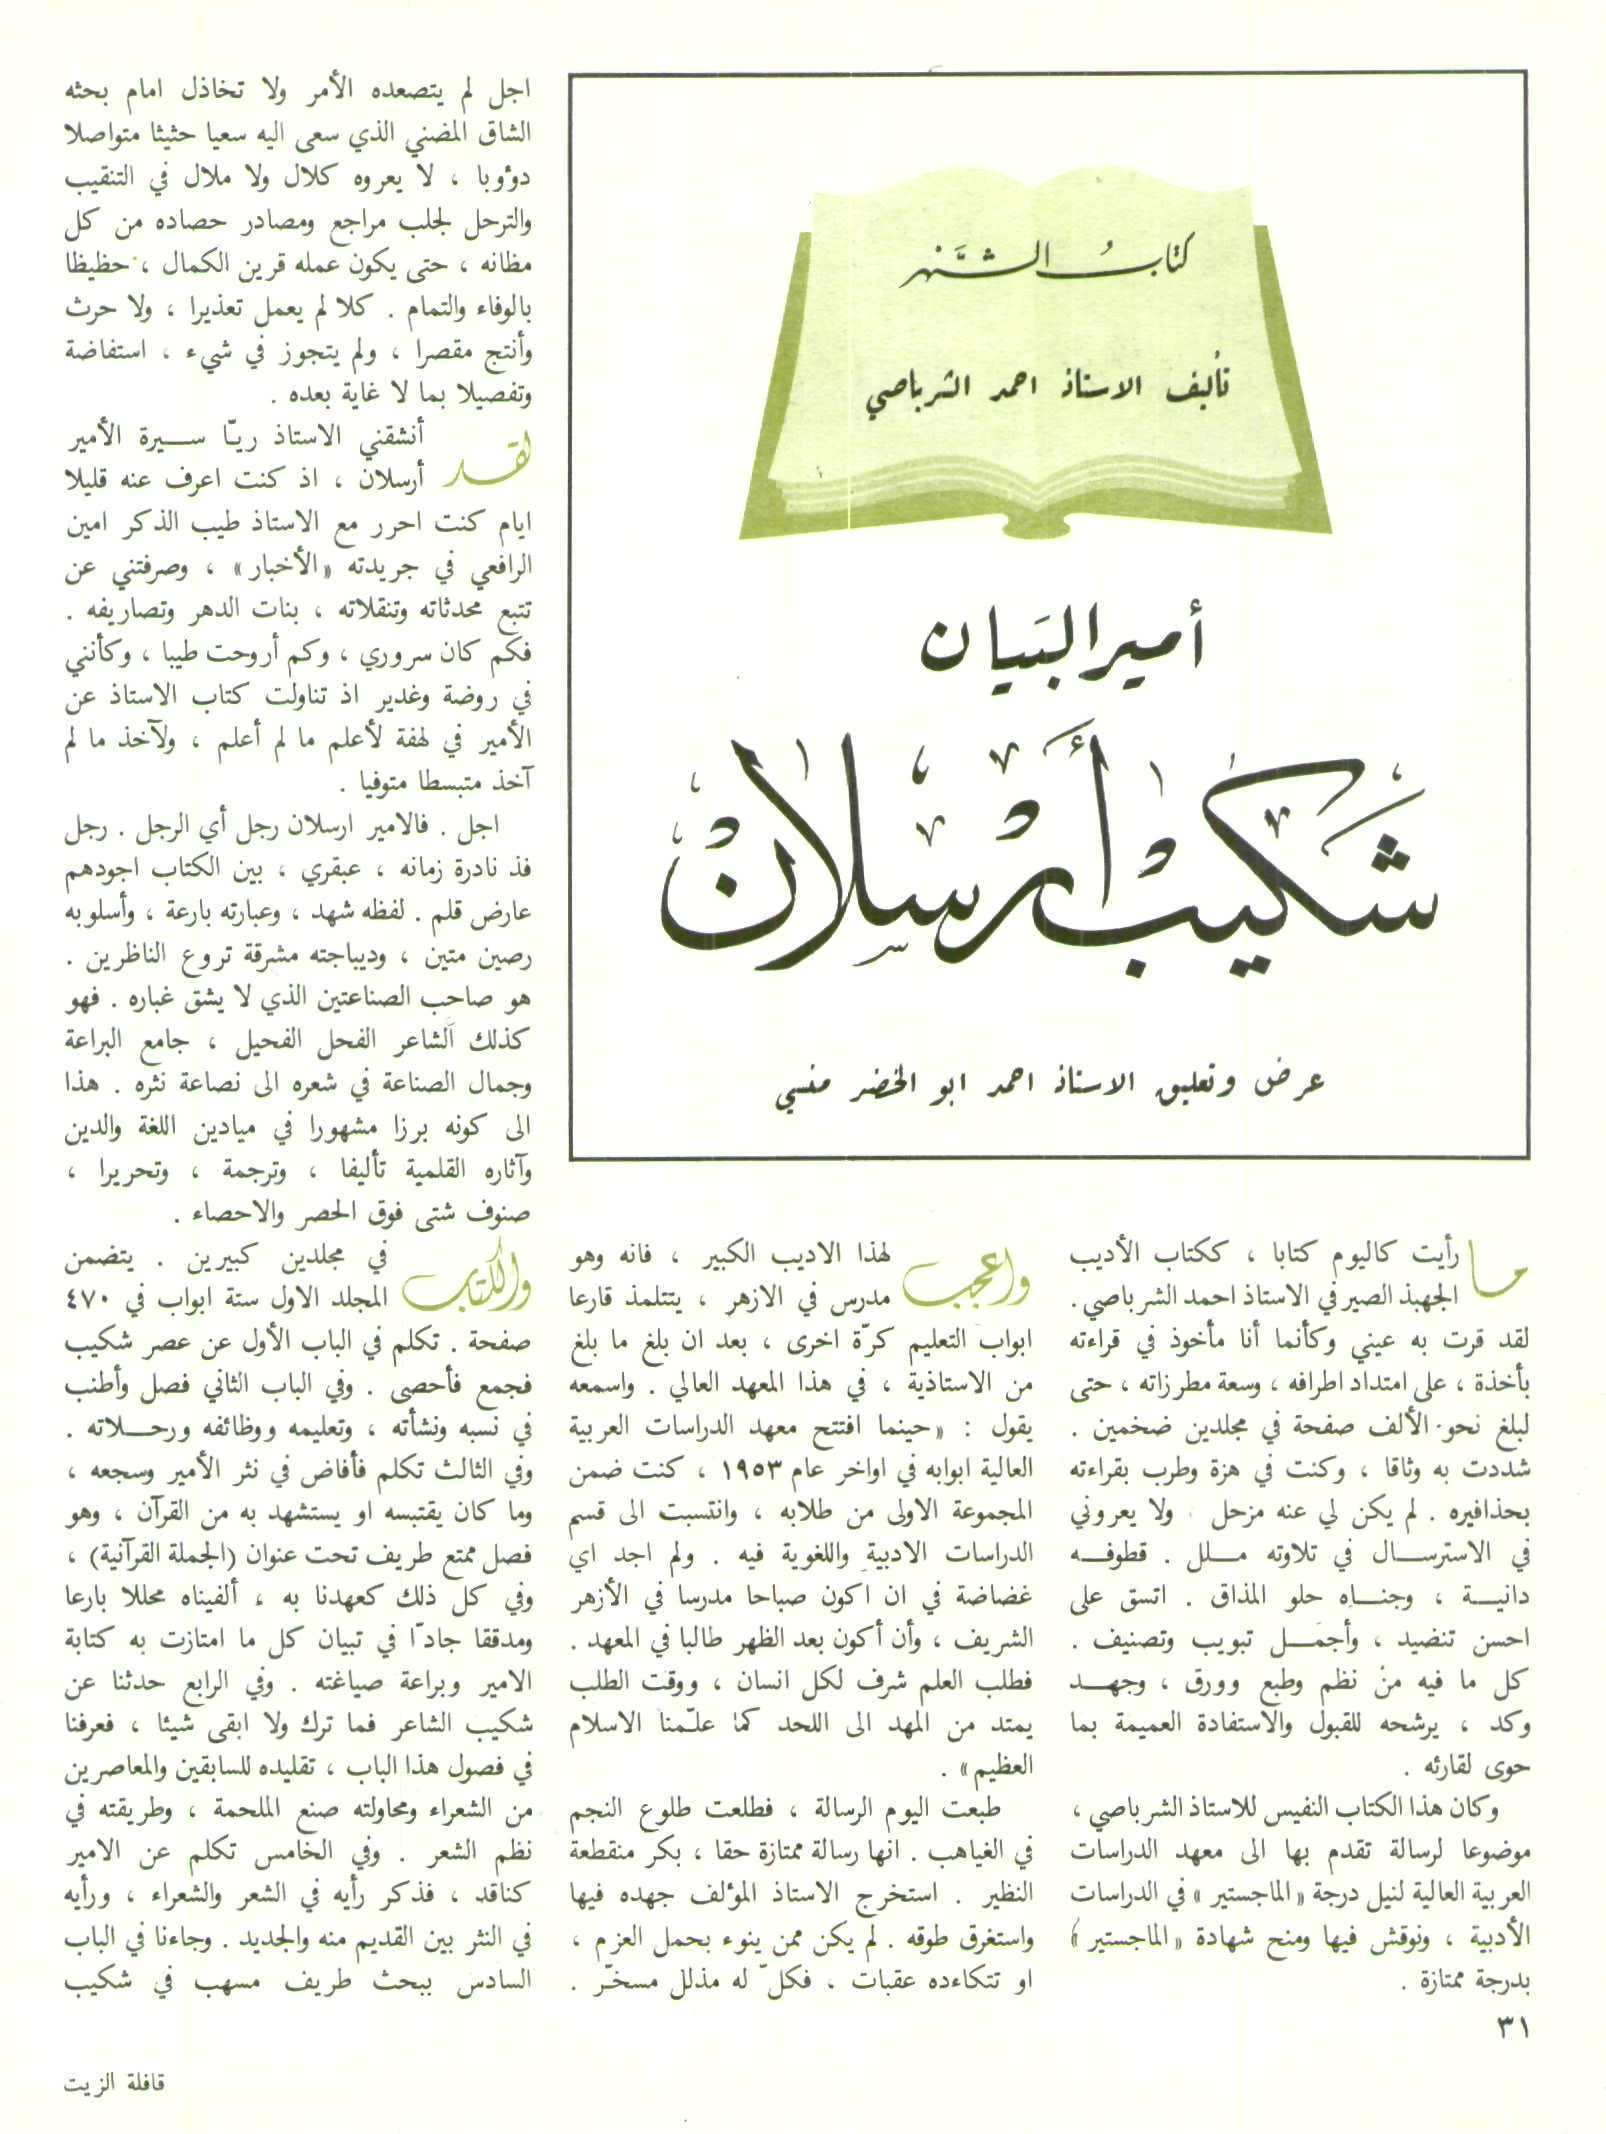 كتاب الشهر
تأليف الاستاذ احمد الشرباصي
أمير البيان
شكيب أرسلان
عرض وتعليق الاستاذ احمد ابو الخضر منسي
ما رأيت كاليوم كتابا ، ككتاب الأديب
الجهبذ الصيرفي الاستاذ احمد الشرباصي .
لقد قرت به عيني وكأنما أنا مأخوذ في قراءته
بأخذة ، على امتداد اطرافه ، وسعة مطرزاته ، حتى
لبلغ نحو الألف صفحة في مجلدين ضخمين .
شددت به وثاقا ، وكنت في هزة وطرب بقراءته
بحذافيره . لم يكن لي عنه مزحل . ولا يعروني
في الاسترسال في تلاوته ملل . قطوفه
دانية ، وجناه حلو المذاق . اتسق على
احسن تنضيد ، وأجمل تبويب وتصنيف .
كل ما فيه من نظم وطبع وورق ، وجهد
وكد ، يرشحه للقبول والاستفادة العميمة بما
حوى لقارئه .
وكان هذا الكتاب النفيس للاستاذ الشرباصي ،
موضوعا لرسالة تقدم بها الى معهد الدراسات
العربية العالية لنيل درجة «الماجستير» في الدراسات
الأدبية ، ونوقش فيها ومنح شهادة «الماجستير»
بدرجة ممتازة .
واعجب لهذا الاديب الكبير ، فانه وهو
مدرس في الازهر ، يتتلمذ قارعا
ابواب التعليم كرّة اخرى ، بعد ان بلغ ما بلغ
من الاستاذية ، في هذا المعهد العالي . واسمعه
يقول : «حينما افتتح معهد الدراسات العربية
العالية ابوابه في اواخر عام ١٩٥٣ ، كنت ضمن
المجموعة الاولى من طلابه ، وانتسبت الى قسم
الدراسات الادبية واللغوية فيه . ولم اجد اي
غضاضة في ان اكون صباحا مدرسا في الأزهر
الشريف ، وأن أكون بعد الظهر طالبا في المعهد .
فطلب العلم شرف لكل انسان ، ووقت الطلب
يمتد من المهد الى اللحد كما علّمنا الاسلام
العظيم» .
طبعت اليوم الرسالة ، فطلعت طلوع النجم
في الغياهب . انها رسالة ممتازة حقا ، بكر منقطعة
النظير . استخرج الاستاذ المؤلف جهده فيها
واستغرق طوقه . لم يكن ممن ينوء بحمل العزم ،
او تتكاءده عقبات ، فكلّ له مذلل مسخّر .
اجل لم يتصعده الأمر ولا تخاذل امام بحثه
الشاق المضني الذي سعى اليه سعيا حثيثا متواصلا
دؤوبا ، لا يعروه كلال ولا ملال في التنقيب
والترحل لجلب مراجع ومصادر حصاده من كل
مظانه ، حتى يكون عمله قرين الكمال ، حظيظا
بالوفاء والتمام . كلا لم يعمل تعذيرا ، ولا حرث
وأنتج مقصرا ، ولم يتجوز في شيء ، استفاضة
وتفصيلا بما لا غاية بعده .
لقد أنشقني الاستاذ ريّا سيرة الأمير
أرسلان ، اذ كنت اعرف عنه قليلا
ايام كنت احرر مع الاستاذ طيب الذكر امين
الرافعي في جريدته «الأخبار» ، وصرفتني عن
تتبع محدثاته وتنقلاته ، بنات الدهر وتصاريفه .
فكم كان سروري ، وكم أروحت طيبا ، وكأنني
في روضة وغدير اذ تناولت كتاب الاستاذ عن
الأمير في لهفة لأعلم ما لم أعلم ، ولآخذ ما لم
آخذ متبسطا متوفيا .
اجل . فالامير ارسلان رجل أي الرجل . رجل
فذ نادرة زمانه ، عبقري ، بين الكتاب اجودهم
عارض قلم . لفظه شهد ، وعبارته بارعة ، وأسلوبه
رصين متين ، وديباجته مشرقة تروع الناظرين .
هو صاحب الصناعتين الذي لا يشق غباره . فهو
كذلك الشاعر الفحل الفحيل ، جامع البراعة
وجمال الصناعة في شعره الى نصاعة نثره . هذا
الى كونه برزا مشهورا في ميادين اللغة والدين
وآثاره القلمية تأليفا ، وترجمة ، وتحريرا ،
صنوف شتى فوق الحصر والاحصاء .
والكتاب في مجلدين كبيرين . يتضمن
المجلد الاول ستة ابواب في ٤٧٠
صفحة . تكلم في الباب الأول عن عصر شكيب
فجمع فأحصى . وفي الباب الثاني فصل وأطنب
في نسبه ونشأته ، وتعليمه ووظائفه ورحلاته .
وفي الثالث تكلم فأفاض في نثر الأمير وسجعه ،
وما كان يقتبسه او يستشهد به من القرآن ، وهو
فصل ممتع طريف تحت عنوان (الجملة القرآنية) ،
وفي كل ذلك كعهدنا به ، ألفيناه محللا بارعا
ومدققا جادّا في تبيان كل ما امتازت به كتابة
الامير وبراعة صياغته . وفي الرابع حدثنا عن
شكيب الشاعر فما ترك ولا ابقى شيئا ، فعرفنا
في فصول هذا الباب ، تقليده للسابقين والمعاصرين
من الشعراء ومحاولته صنع الملحمة ، وطريقته في
نظم الشعر . وفي الخامس تكلم عن الامير
كناقد ، فذكر رأيه في الشعر والشعراء ، ورأيه
في النثر بين القديم منه والجديد . وجاءنا في الباب
السادس ببحث طريف مسهب في شكيب
٣١
قافلة الزيت